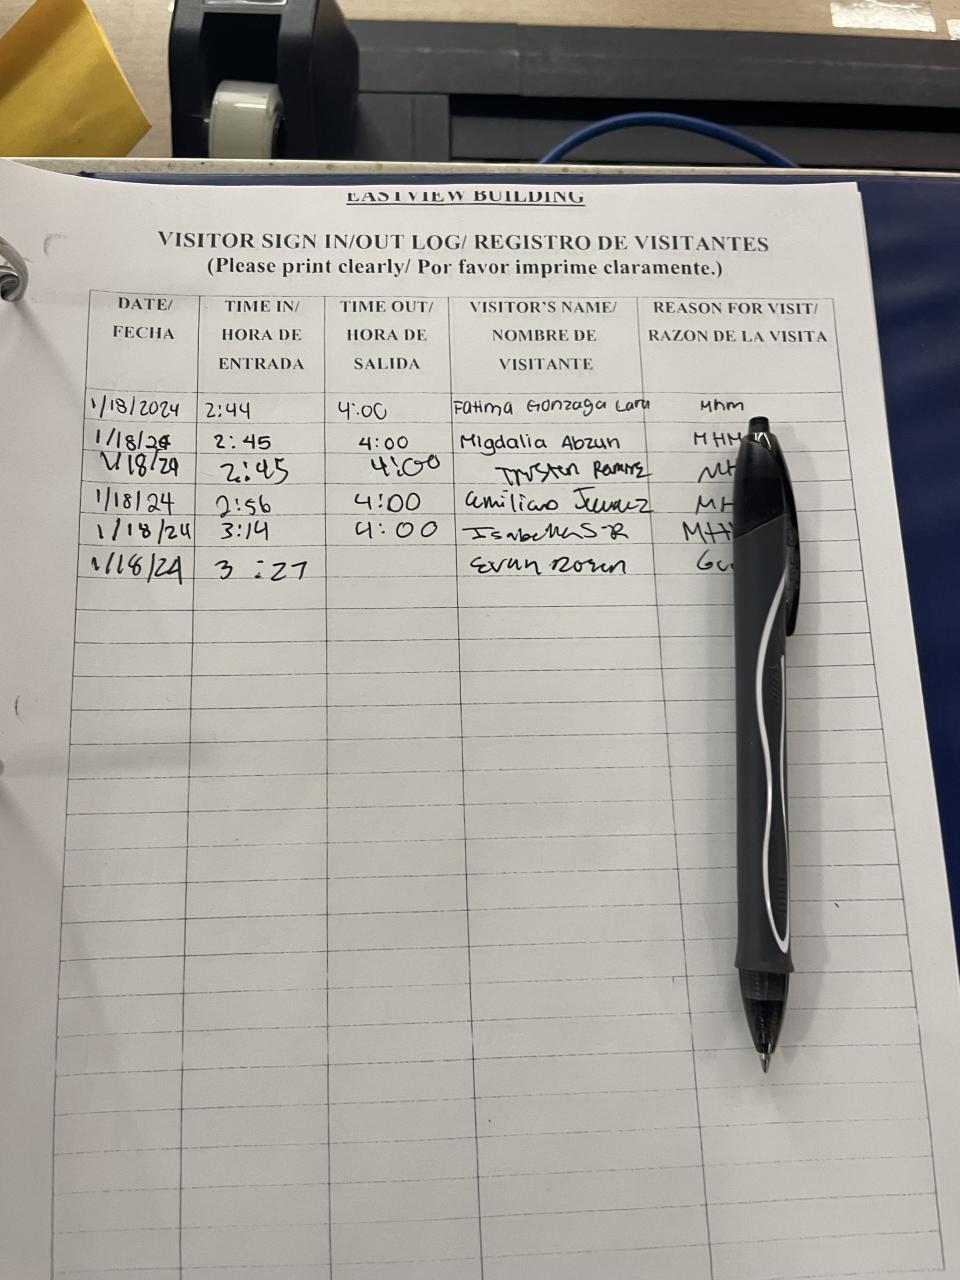 EASTVIEW BUILDING
VISITOR SIGN IN/OUT LOG/ REGISTRO DE VISITANTES
(Please print clearly/ Por favor imprime claramente.)
DATE/ FECHA TIME IN/ HORA DE ENTRADA TIME OUT/ HORA DE SALIDA VISITOR'S NAME/ NOMBRE DE VISITANTE REASON FOR VISIT/ RAZON DE LA VISITA
1/18/2024 2:44 4:00 Fatima Gonzaga Lara Mhm
1/18/24 2:45 4:00 Migdalia Abzun MHM
1/18/24 2:45 4:00 MH
1/18/24 2:56 4:00 MH
1/18/24 3:14 4:00 MHM
1/18/24 3:27 Evan Rosen